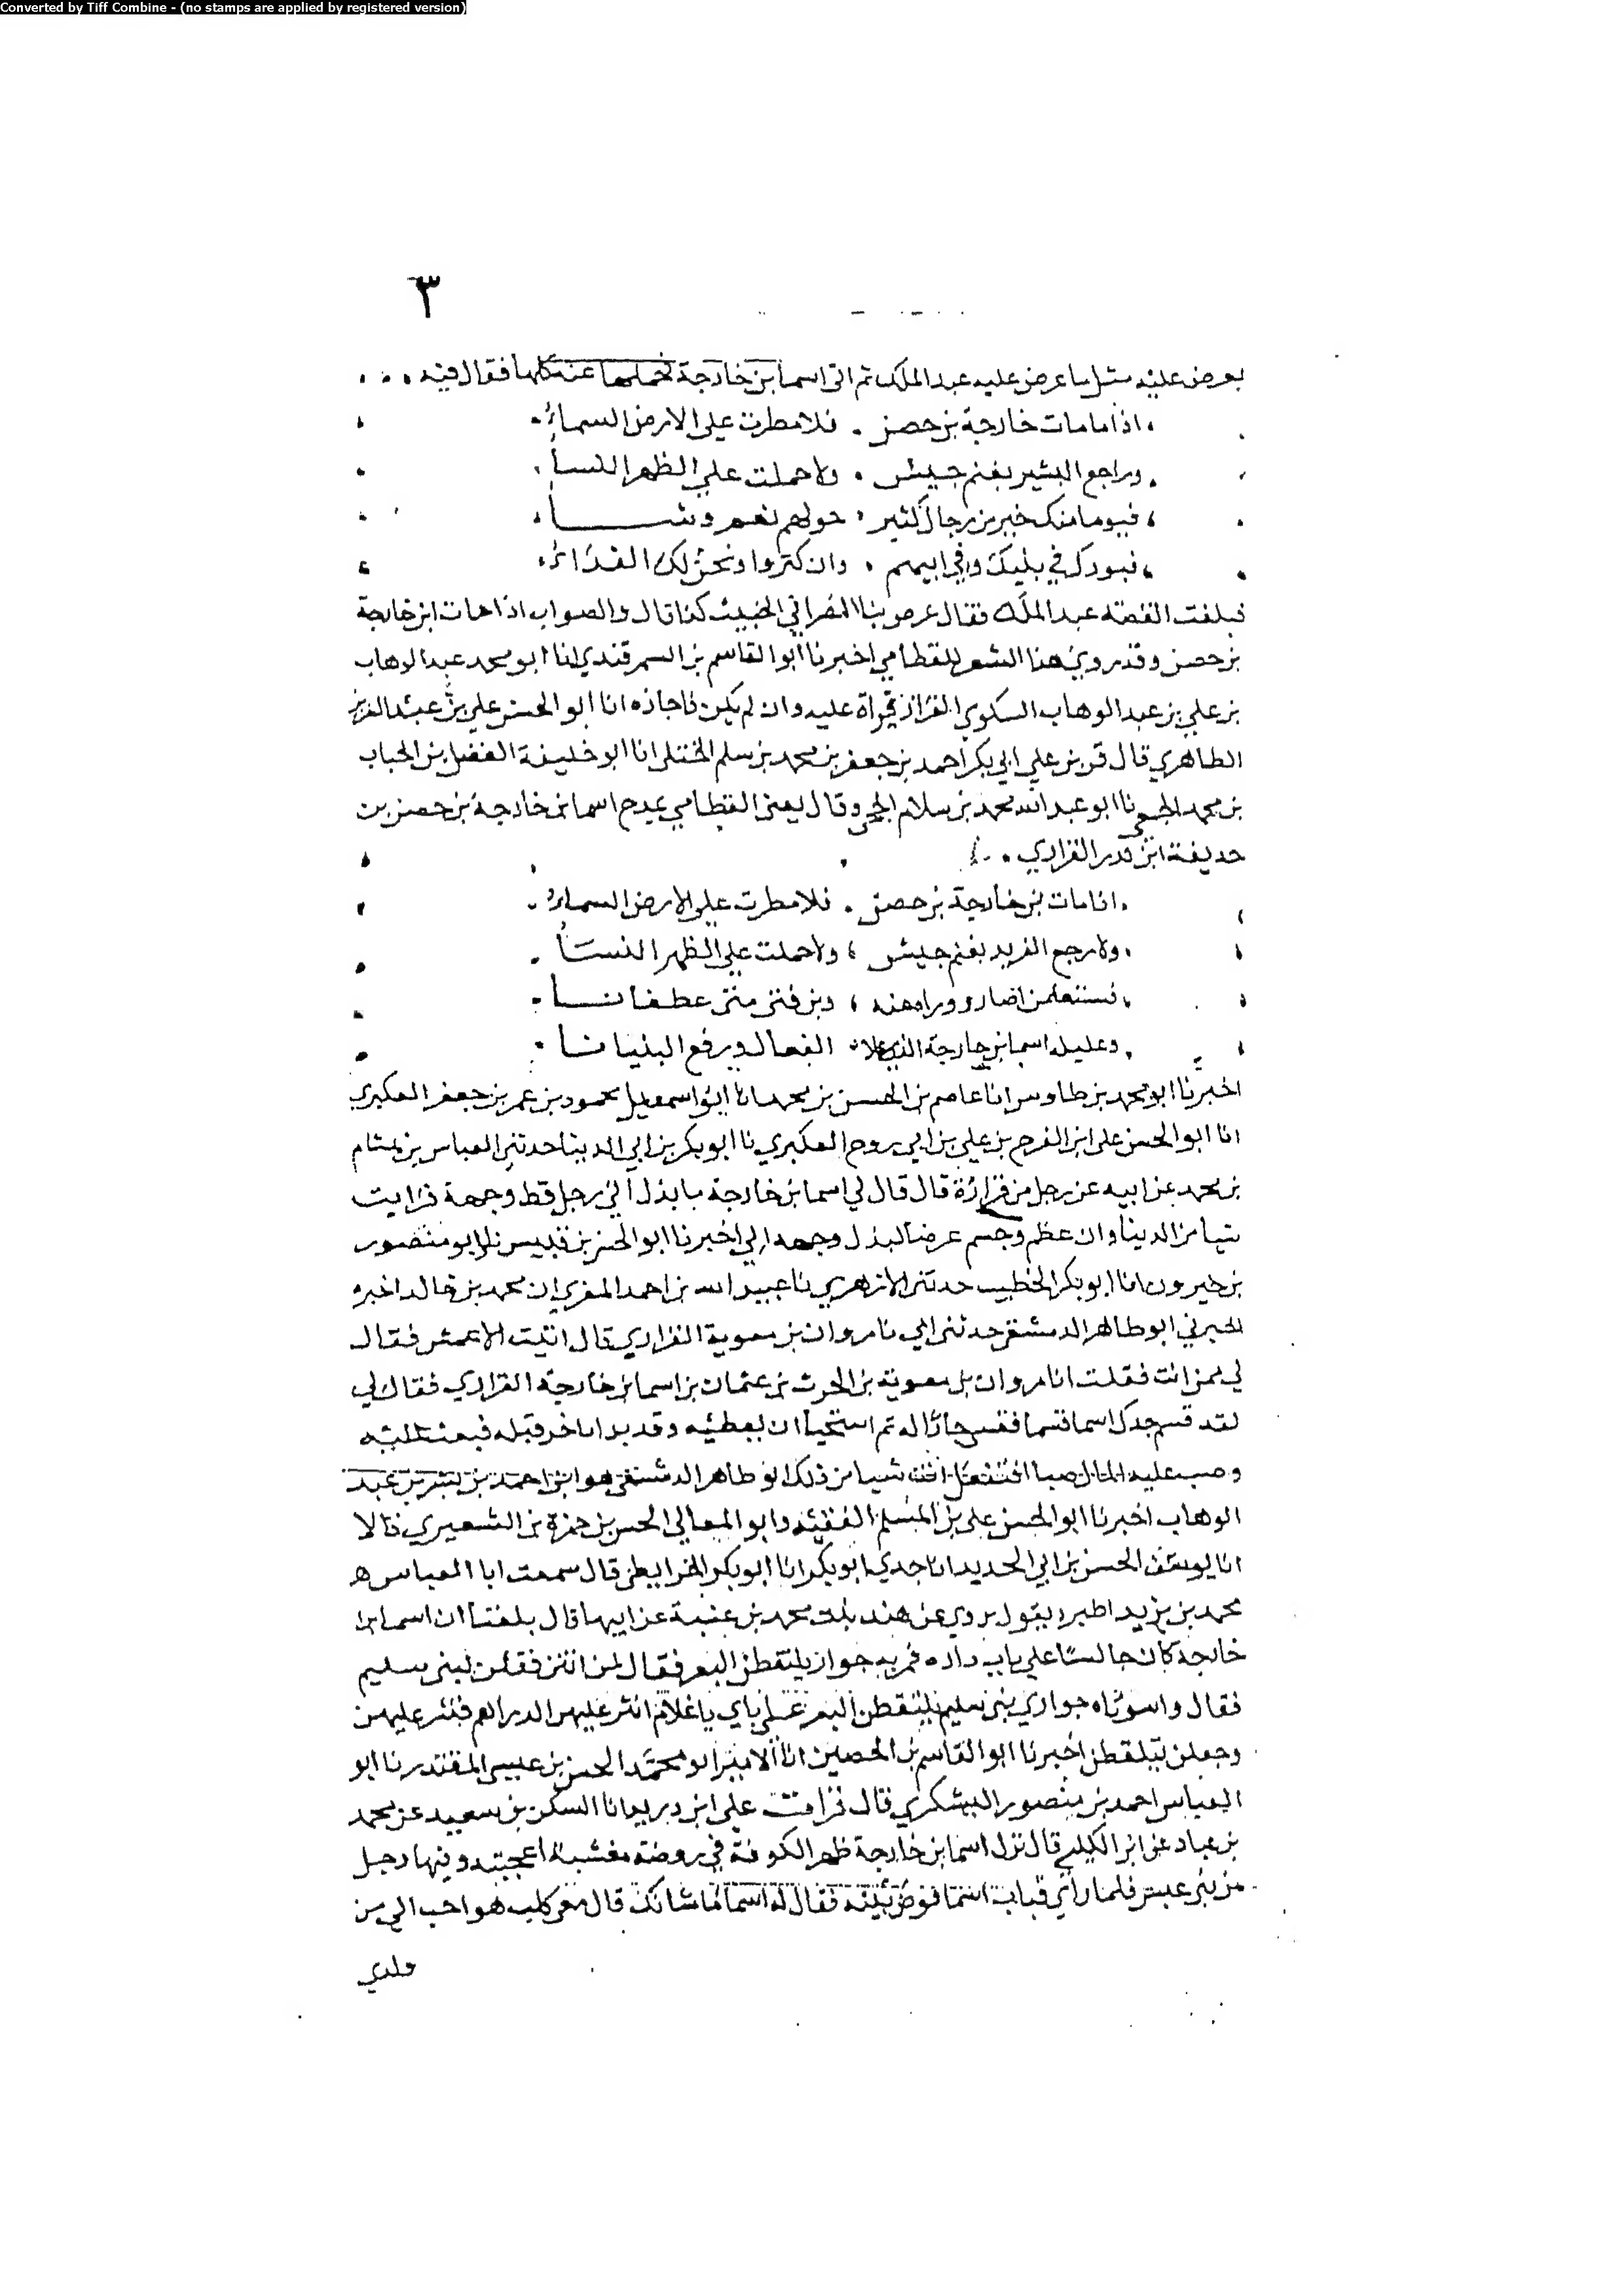 Converted by Tiff Combine - (no stamps are applied by registered version)
٣
يعرض عليه مثل ما عرض عليه عبد الملك ثم اتى اسما بن خارجة فحملها عنه كلها فقال فيه
اذا ما مات خارجة بن حصن . فلا مطرت على الارض السماء
ورا جع البشير بغنم جيش . ولا حملت على الظهر النسا
فيوما منك خير من رجال كثير . حولهم نعم وشا
فبورك في بنيك وفي ابيهم . وان كثروا ونحن لك الفداء
فبلغت القصة عبد الملك فقال عرض بنا النصراني الخبيث كذا قال والصواب اذا مات ابن خارجة
بن حصن وقد روي هذا الشعر للقطامي اخبرنا ابو القاسم بن السمرقندي انا ابو محمد عبد الوهاب
بن علي بن عبد الوهاب السكري البزاز قراة عليه وان لم يكن فاجازه انا ابو الحسن علي بن عبد العزيز
الطاهري قال قري علي ابي بكر احمد بن جعفر بن محمد بن سلم الختلي انا ابو خليفة الفضل بن الحباب
بن محمد الجمحي نا ابو عبد الله محمد بن سلام الجمحي وقال يعني القطامي يمدح اسما بن خارجة بن حصن بن
حديفة ابن بدر الفزاري
اذا مات بن خارجة بن حصن . فلا مطرت علي الارض السماء
ولا رجع البريد بغنم جيش ، ولا حملت علي الظهر النسا
وعليك اسما بن خارجة الذي علا الفعال ورفع البنيانا
اخبرنا ابو محمد بن طاوس انا عاصم بن الحسن بن محمد انا ابو اسمعيل محمود بن عمر بن جعفر العكبري
انا ابو الحسن على ابن الفرج بن علي بن ابي روح العكبري نا ابو بكر بن ابي الدنيا حدثني العباس بن هشام
بن محمد عن ابيه عن رجل من فزارة قال قال لي اسما بن خارجة ما بذل الي رجل قط وجهه فرايت
شيا من الدنيا وان عظم وجسم عرضا لبذل وجهه الي اخبرنا ابو الحسن بن قبيس نا وابو منصور
بن خيرون انا ابو بكر الخطيب حدثني الازهري نا عبيد الله بن احمد المقري ان محمد بن خالد اخبره
اخبرني ابو طاهر الدمشقي حدثني ابي نا مروان بن معوية الفزاري قال اتيت الاعمش فقال
لي ممن انت فقلت انا مروان بن معوية بن الحرث بن عثمان بن اسما بن خارجة الفزاري فقال لي
لقد قسم جدك اسما قسما فنسي جارا له ثم استحيا ان يعطيه وقد بدا باخر قبله فبعث اليه
وصب عليه المال صبا افتفعل انت شيا من ذلك ابو طاهر الدمشقي هو ابن احمد بن بشر بن عبد
الوهاب اخبرنا ابو الحسن علي بن المسلم الفقيه وابو المعالي الحسن بن حمزة بن الشعيري قالا
انا ابو الحسن بن ابي الحديد انا جدي ابو بكر انا ابو بكر الخرايطي قال سمعت ابا العباس
محمد بن يزيد المبرد يقول يروي عن هند بنت محمد بن عتبة عن ابيها قال بلغنا ان اسما بن
خارجة كان جالسا علي باب داره فمر به جوار يلتقطن البعر فقال لمن انتن فقلن لبني سليم
فقال واسوتاه جواري بني سليم يلتقطن البعر علي بابي يا غلام انثر عليهن الدراهم فنثر عليهن
وجعلن يتلقطن اخبرنا ابو القاسم بن الحصين انا الامير ابو محمد الحسن بن عيسي المقتدر نا ابو
العباس احمد بن منصور اليشكري قال قرات علي ابن دريد انا السكن بن سعيد عن محمد
بن عباد عن ابن الكلبي قال نزل اسما بن خارجة ظهر الكوفة في روضة معشبة اعجبته وفيها رجل
من بني عبس فلما راي قباب اسما قوض بيته فقال له اسما ما شانك قال معي كلب هو احب الي من
ولدي